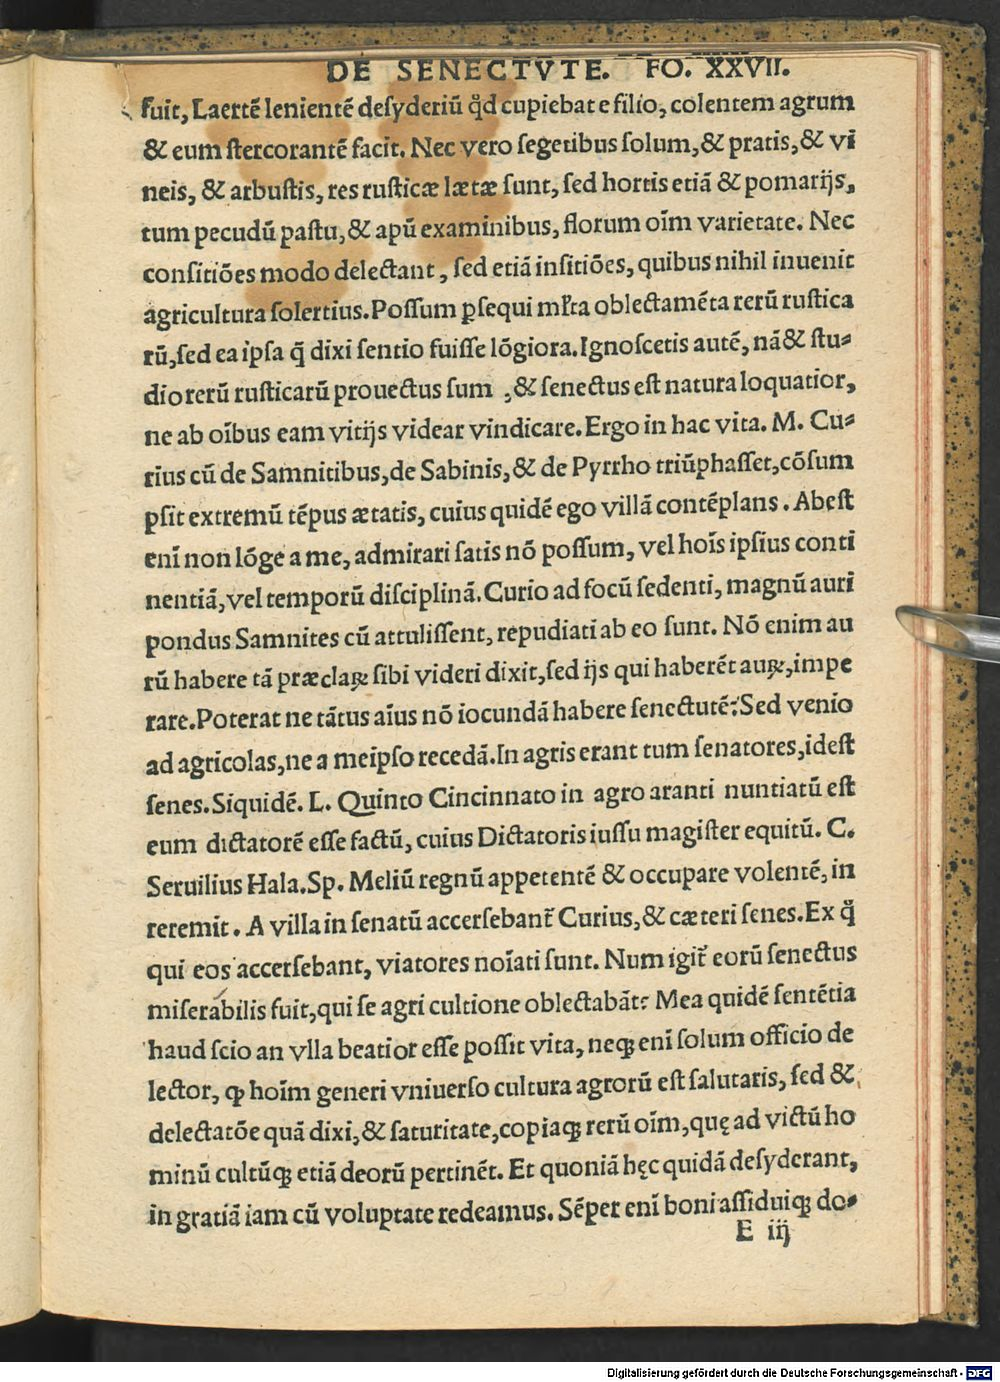 DE SENECTVTE. FO. XXVII.
fuit, Laertē lenientē desyderiū qd̄ cupiebat e filio, colentem agrum
& eum stercorantē facit. Nec vero segetibus solum, & pratis, & vi
neis, & arbustis, res rusticæ lætæ sunt, sed hortis etiā & pomarijs,
tum pecudū pastu, & apū examinibus, florum oīm varietate. Nec
consitiōes modo delectant, sed etiā insitiōes, quibus nihil inuenit
agricultura solertius. Possum ꝑsequi ml̄ta oblectamēta rerū rustica
rū, sed ea ipsa q̄ dixi sentio fuisse lōgiora. Ignoscetis autē, nā & stu-
dio rerū rusticarū prouectus sum, & senectus est natura loquatior,
ne ab oībus eam vitijs videar vindicare. Ergo in hac vita. M. Cu-
rius cū de Samnitibus, de Sabinis, & de Pyrrho triūphasset, cōsum
psit extremū tēpus ætatis, cuius quidē ego villā contēplans. Abest
enī non lōge a me, admirari satis nō possum, vel hoīs ipsius conti
nentiā, vel temporū disciplinā. Curio ad focū sedenti, magnū auri
pondus Samnites cū attulissent, repudiati ab eo sunt. Nō enim au
rū habere tā præclaꝝ sibi videri dixit, sed ijs qui haberēt auꝝ, impe
rare. Poterat ne tātus aīus nō iocundā habere senectutē? Sed venio
ad agricolas, ne a meipso recedā. In agris erant tum senatores, idest
senes. Siquidē. L. Quinto Cincinnato in agro aranti nuntiatū est
eum dictatorē esse factū, cuius Dictatoris iussu magister equitū. C.
Seruilius Hala. Sp. Meliū regnū appetentē & occupare volentē, in
teremit. A villa in senatū accersebant̄ Curius, & cæteri senes. Ex q̊
qui eos accersebant, viatores noīati sunt. Num igit̄ eorū senectus
miserabilis fuit, qui se agri cultione oblectabāt? Mea quidē sentētia
haud scio an vlla beatior esse possit vita, neqꝫ enī solum officio de
lector, ꝙ hoīm generi vniuerso cultura agrorū est salutaris, sed &
delectatōe quā dixi, & saturitate, copiaqꝫ rerū oīm, quę ad victū ho
minū cultūqꝫ etiā deorū pertinēt. Et quoniā hęc quidā desyderant,
in gratiā iam cū voluptate redeamus. Sēper enī boni assiduiqꝫ do-
E iij
Digitalisierung gefördert durch die Deutsche Forschungsgemeinschaft - DFG